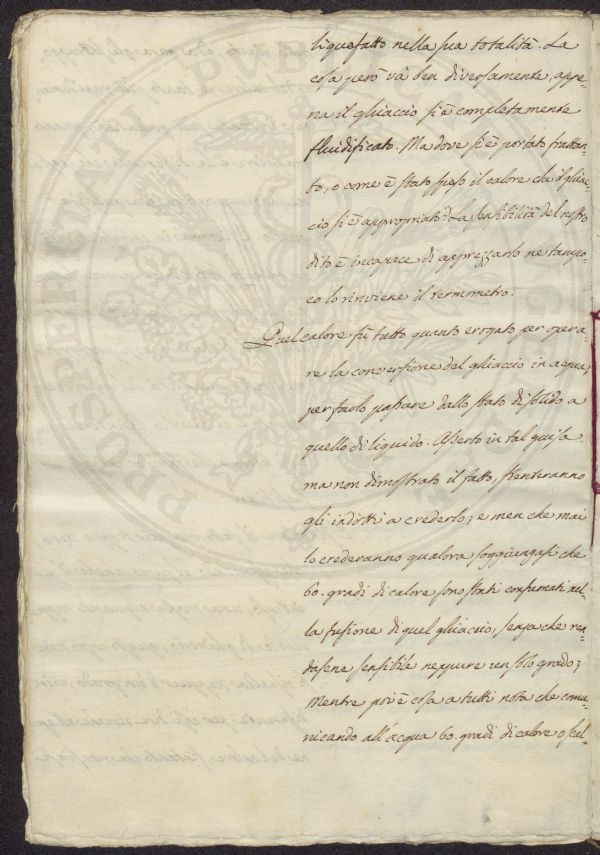 liquefatto nella sua totalità. La
cosa però và ben diversamente, appe-
na il ghiaccio si è completamente
fluidificato. Ma dove si è portato frattan-
to, o come è stato speso il calore che il ghiac-
cio si è appropriato? La sensibilità del nostro
dito è incapace di apprezzarlo ne tampo-
co lo rinviene il termometro.
Quel calore fù tutto quanto erogato per opera-
re la conversione del ghiaccio in acqua,
per farlo passare dallo stato di solido a
quello di liquido. Asserto in tal guisa
ma non dimostrato il fatto, stenteranno
gli indotti a crederlo; e men che mai
lo crederanno qualora soggiungasi che
60. gradi di calore sono stati consumati nel-
la fusione di quel ghiaccio, senza che ren-
dasene sensibile neppure un solo grado;
Mentre poi è cosa a tutti nota che comu-
nicando all'acqua 60. gradi di calore o sul-
PUBLICA
PROSPERITATI